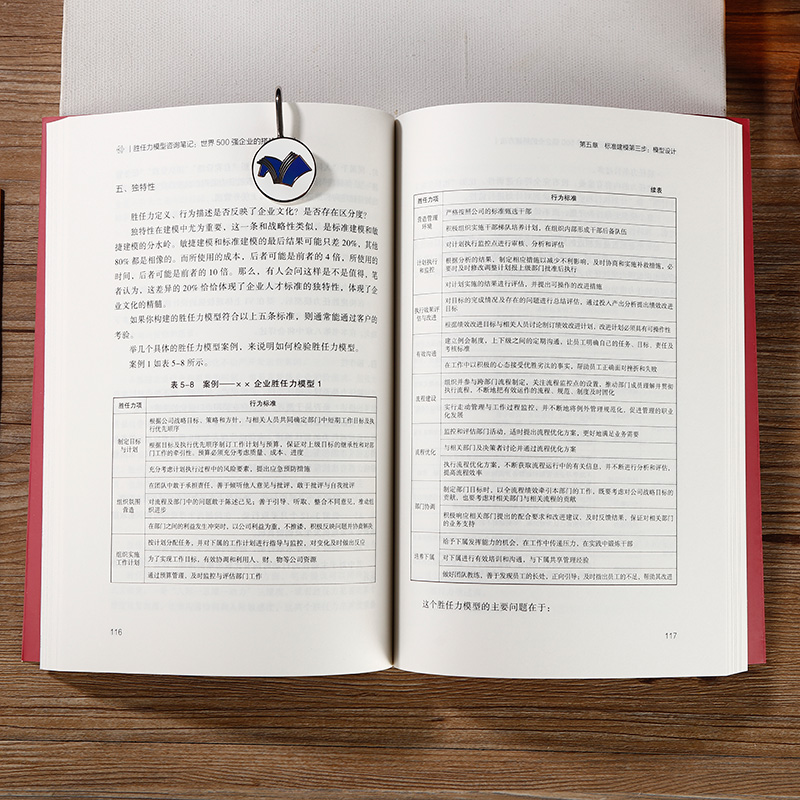 胜任力模型咨询笔记：世界500强企业的搭
五、独特性
胜任力定义、行为描述是否反映了企业文化？是否存在区分度？
独特性在建模中尤为重要，这一条和战略性类似，是标准建模和敏
捷建模的分水岭。敏捷建模和标准建模的最后结果可能只差20%，其他
80%都是相像的。而所使用的成本，后者可能是前者的4倍，所使用的
时间，后者可能是前者的10倍。那么，有人会问这样是不是值得，笔
者认为，这差异的20%恰恰体现了企业人才标准的独特性，体现了企
业文化的精髓。
如果你构建的胜任力模型符合以上五条标准，则通常能通过客户的
考验。
举几个具体的胜任力模型案例，来说明如何检验胜任力模型。
案例1如表5-8所示。
表5-8 案例——××企业胜任力模型1
胜任力项 行为标准
制定目标
与计划
根据公司战略目标、策略和方针，与相关人员共同确定部门中短期工作目标及执
行优先顺序
根据目标及执行优先顺序制订工作计划与预算，保证对上级目标的继承性和对部
门工作的牵引性。预算必须充分考虑质量、成本、进度
充分考虑计划执行过程中的风险要素，提出应急预防措施
组织氛围
营造
在团队中敢于承担责任，善于倾听他人意见与批评，敢于批评与自我批评
对流程及部门中的问题敢于陈述己见；善于引导、听取、整合不同意见，推动组
织进步
在部门之间的利益发生冲突时，以公司利益为重，不推诿，积极反映问题并协商解决
组织实施
工作计划
按计划分配任务，并对下属的工作计划进行指导与监控，对变化及时做出反应
为了实现工作目标，有效协调和利用人、财、物等公司资源
通过预算管理，及时监控与评估部门工作
116
第五章 标准建模第三步：模型设计
续表
胜任力项 行为标准
营造管理
环境
严格按照公司的标准甄选干部
积极组织实施干部梯队培养计划，在组织内部形成干部后备队伍
计划执行
和监控
对计划执行监控点进行审核、分析和评估
根据分析的结果，制定相应措施以减少不利影响，及时协商和实施补救措施，必
要时及时修改调整计划报上级部门批准后执行
对计划实施的结果进行评估，并提出可操作的改进措施
执行效果评
估与改进
对目标的完成情况及存在的问题进行总结评估，通过投入产出分析提出绩效改进
目标
根据绩效改进目标与相关人员讨论制订绩效改进计划，改进计划必须具有可操作性
有效沟通
建立例会制度，上下级之间的定期沟通，让员工明确自己的任务、目标、责任及
考核标准
在工作中以积极的心态接受优胜劣汰的事实，帮助员工正确面对挫折和失败
流程建设
组织并参与跨部门流程制定，关注流程监控点的设置，推动部门成员理解并贯彻
执行流程，不断地把有效运作的流程、规范、制度及时固化
实行走动管理与工作过程监控，并不断地将例外管理规范化，促进管理的职业
化发展
流程优化
监控和评估部门活动，适时提出流程优化方案，更好地满足业务需要
与相关部门及决策者讨论并通过流程优化方案
执行流程优化方案，不断获取流程运行中的有关信息，并不断进行分析和评估，
提高流程效率
部门协调
制定部门目标时，以全流程绩效牵引本部门的工作，既要考虑对公司战略目标的
贡献，也要考虑对相关部门与相关流程的贡献
积极响应相关部门提出的配合要求和改进建议，及时反馈结果，保证对相关部门
的业务支持
培养下属
给予下属发挥能力的机会，在工作中传递压力，在实践中锻炼干部
对下属进行有效培训和沟通，与下属共享管理经验
做好团队教练，善于发现员工的长处，正向引导；及时指出员工的不足，帮助其改进
这个胜任力模型的主要问题在于：
117